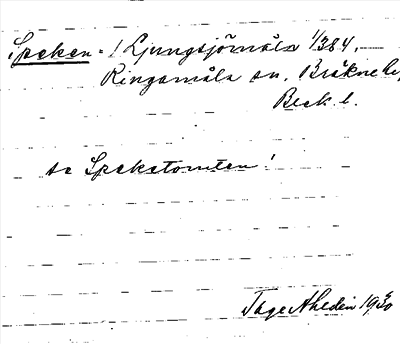 Speken = / Ljungsjömåla 1/384,
Ringamåla sn. Bräkne h.,
Blek. l.
se Spekatomten!
Tage Ahldin 1930